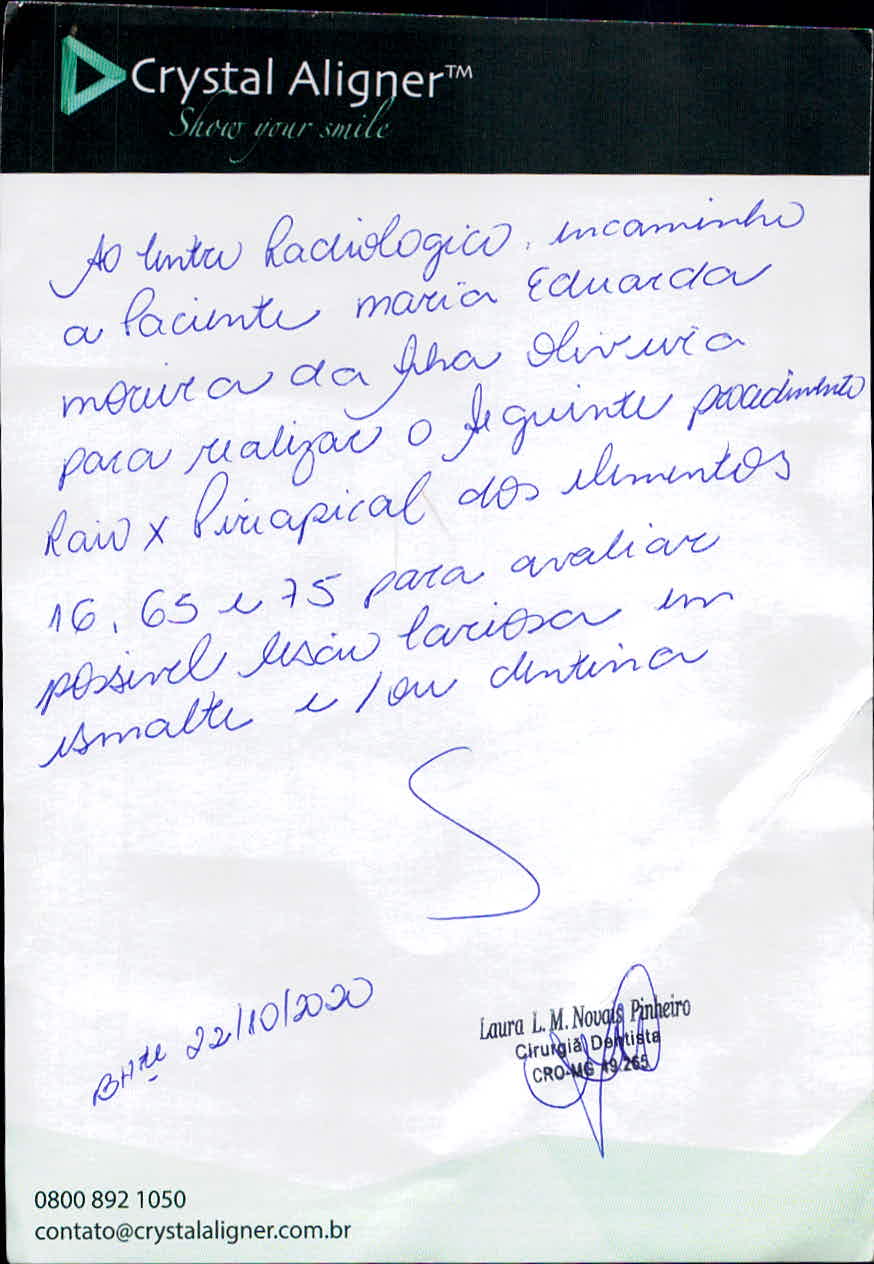 Crystal Aligner™
Show your smile
Ao Centro Radiologico, encaminho
a Paciente maria Eduarda
moreira da Silva Oliveira
para realizar o seguinte procedimento
Raio x Periapical dos elementos
16, 65 e 75 para avaliar
possivel lesão Cariosa em
esmalte e / ou dentina
BHte 22/10/2020
Laura L. M. Novais Pinheiro
Cirurgiã Dentista
CRO-MG 49.265
0800 892 1050
contato@crystalaligner.com.br